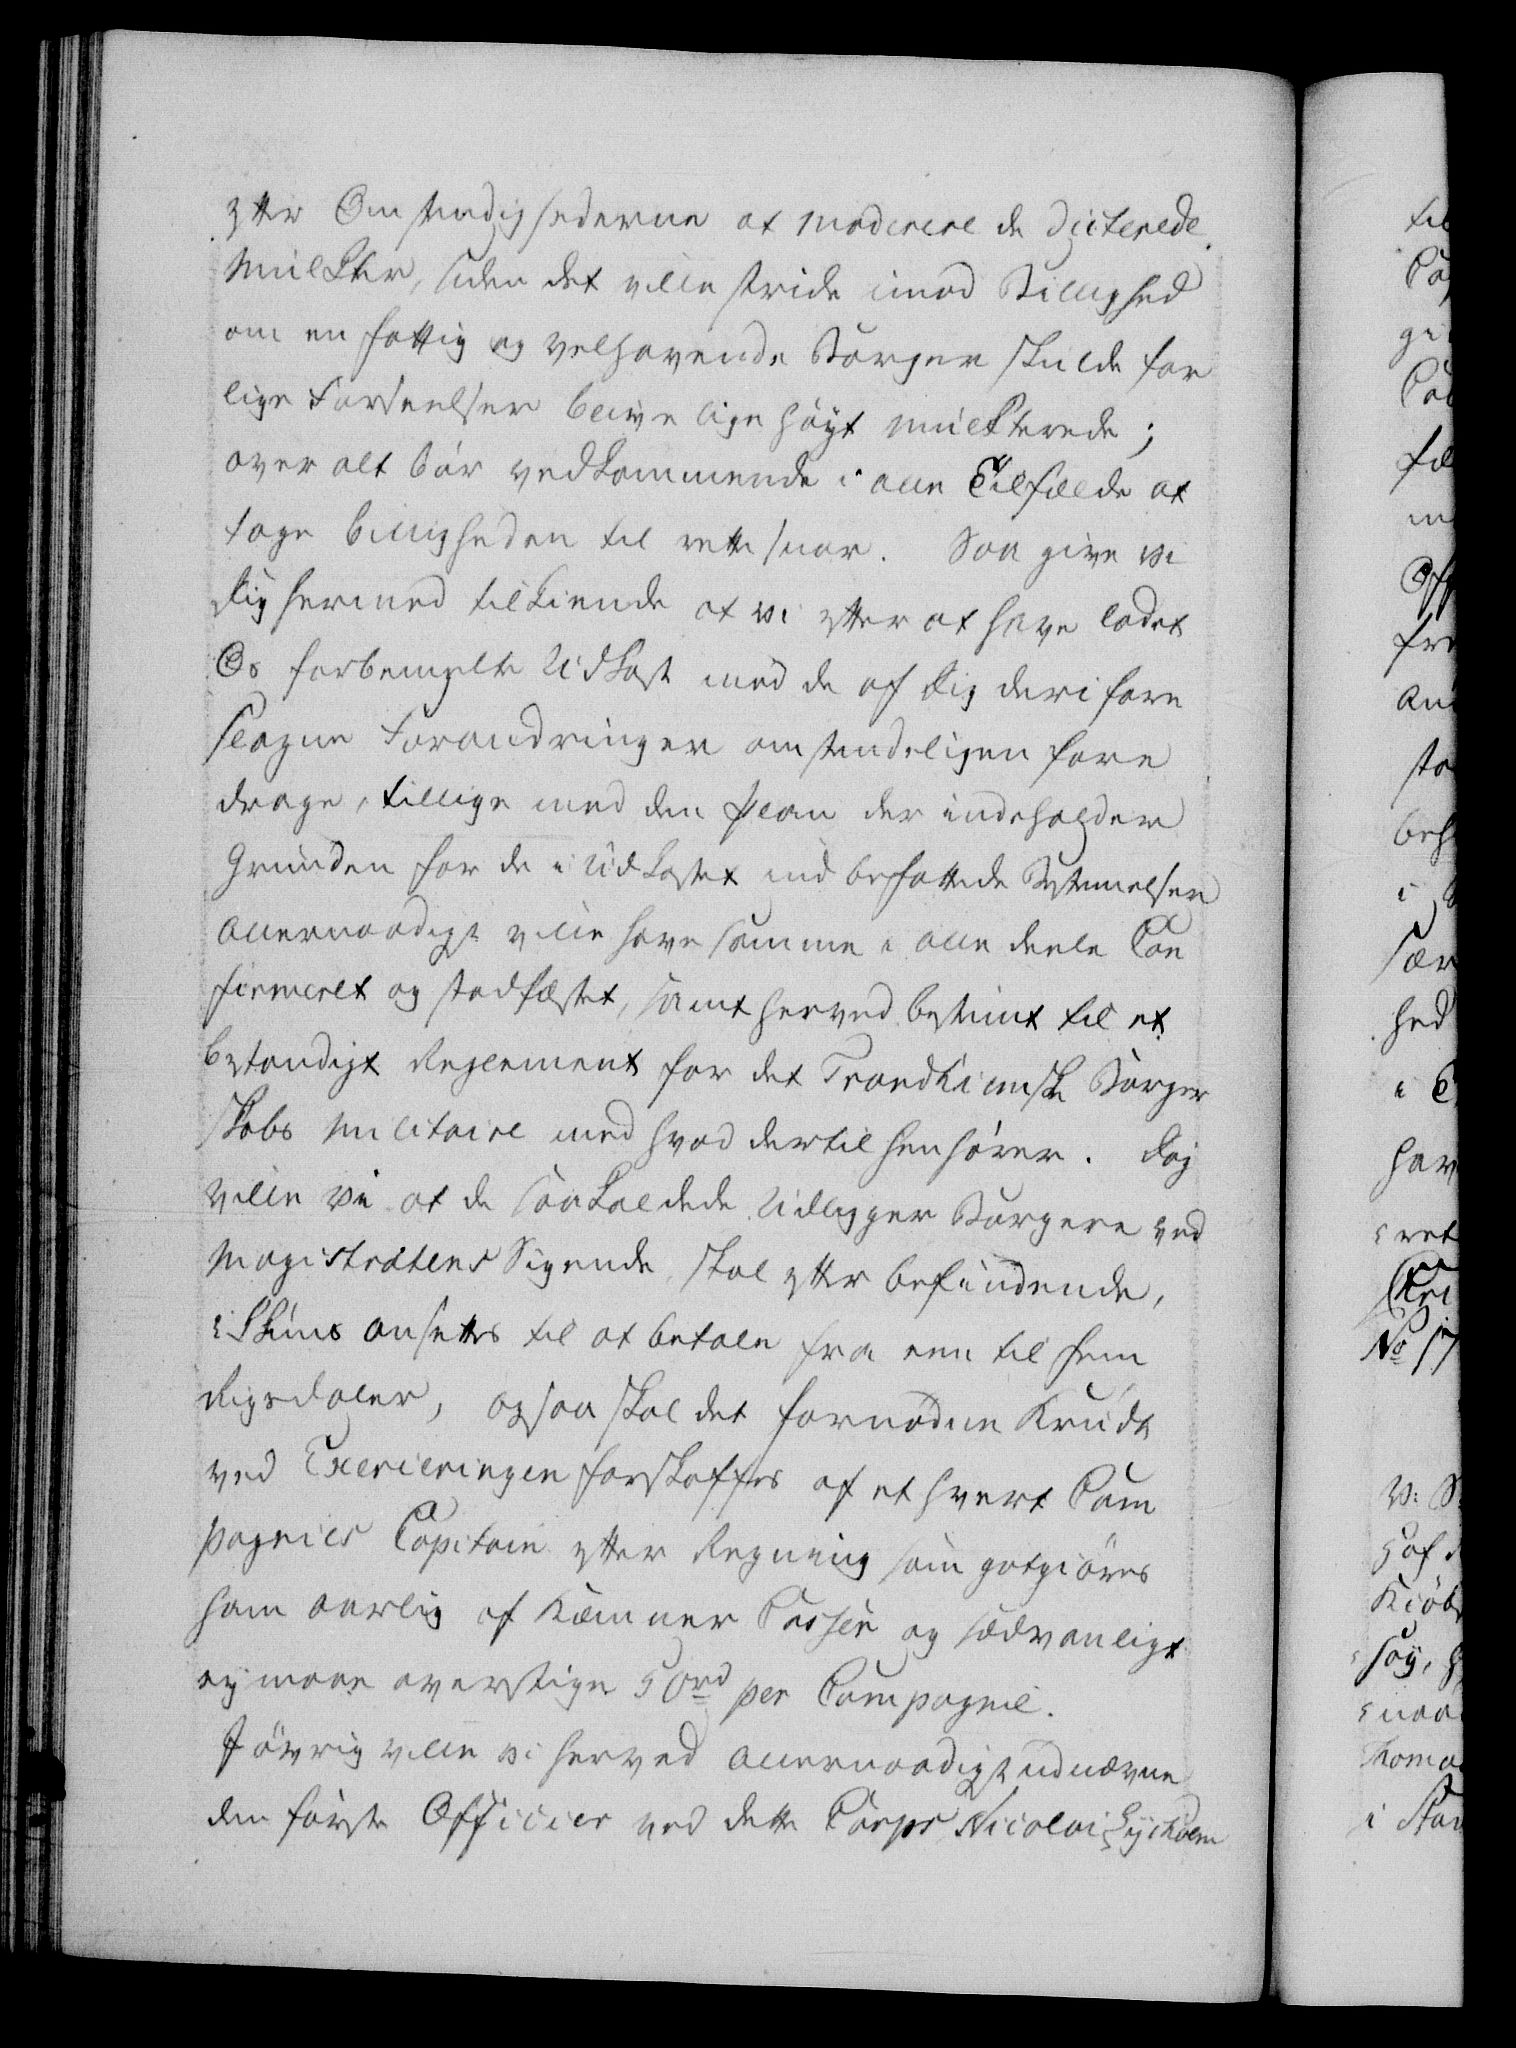 efter Omstendighederne at moderere de dicterede
Mulkter, siden det ville stride imod Billighed
om en fattig og velhavende Borger skulde for
lige Forseelser blive lige høyt mulkterede;
over alt bør vedkommende i alle Tilfælde at
tage billigheden til rettesnor. Saa give vi
dig hermed tilkiende at vi efter at have ladet
Os forbemelte Udkast med de af dig deri fore
slagne Forandringer omstendeligen fore
drage, tillige med den plan der indeholder
Grunden for de i Udkastet indbefattede Bestemmelser
allernaadigst ville have samme i alle deele Con
firmeret og stadfæstet, samt herved bestemt til et
bestandigt Reglement for det Trondhiemske Borger
skabs Militaire med hvad dertil henhører. dog
ville vi at de saa kaldede Udligger Borgere ved
Magistratens Sigende skal efter befindende,
i Skims ansettes til at betale fra een til fem
Rigsdaler, ogsaa skal det fornødne Krudt
ved Exerceringen forskaffes af et hvert Com
pagnies Capitain efter Regning som godtgiøres
ham aarlig af Kæmner Cassen og sædvanligt
ey maae overstige 50rd per Compagnie.
I øvrig ville vi herved allernaadigst udnævne
den første Officier ved dette Corps Nicolai Lysholm